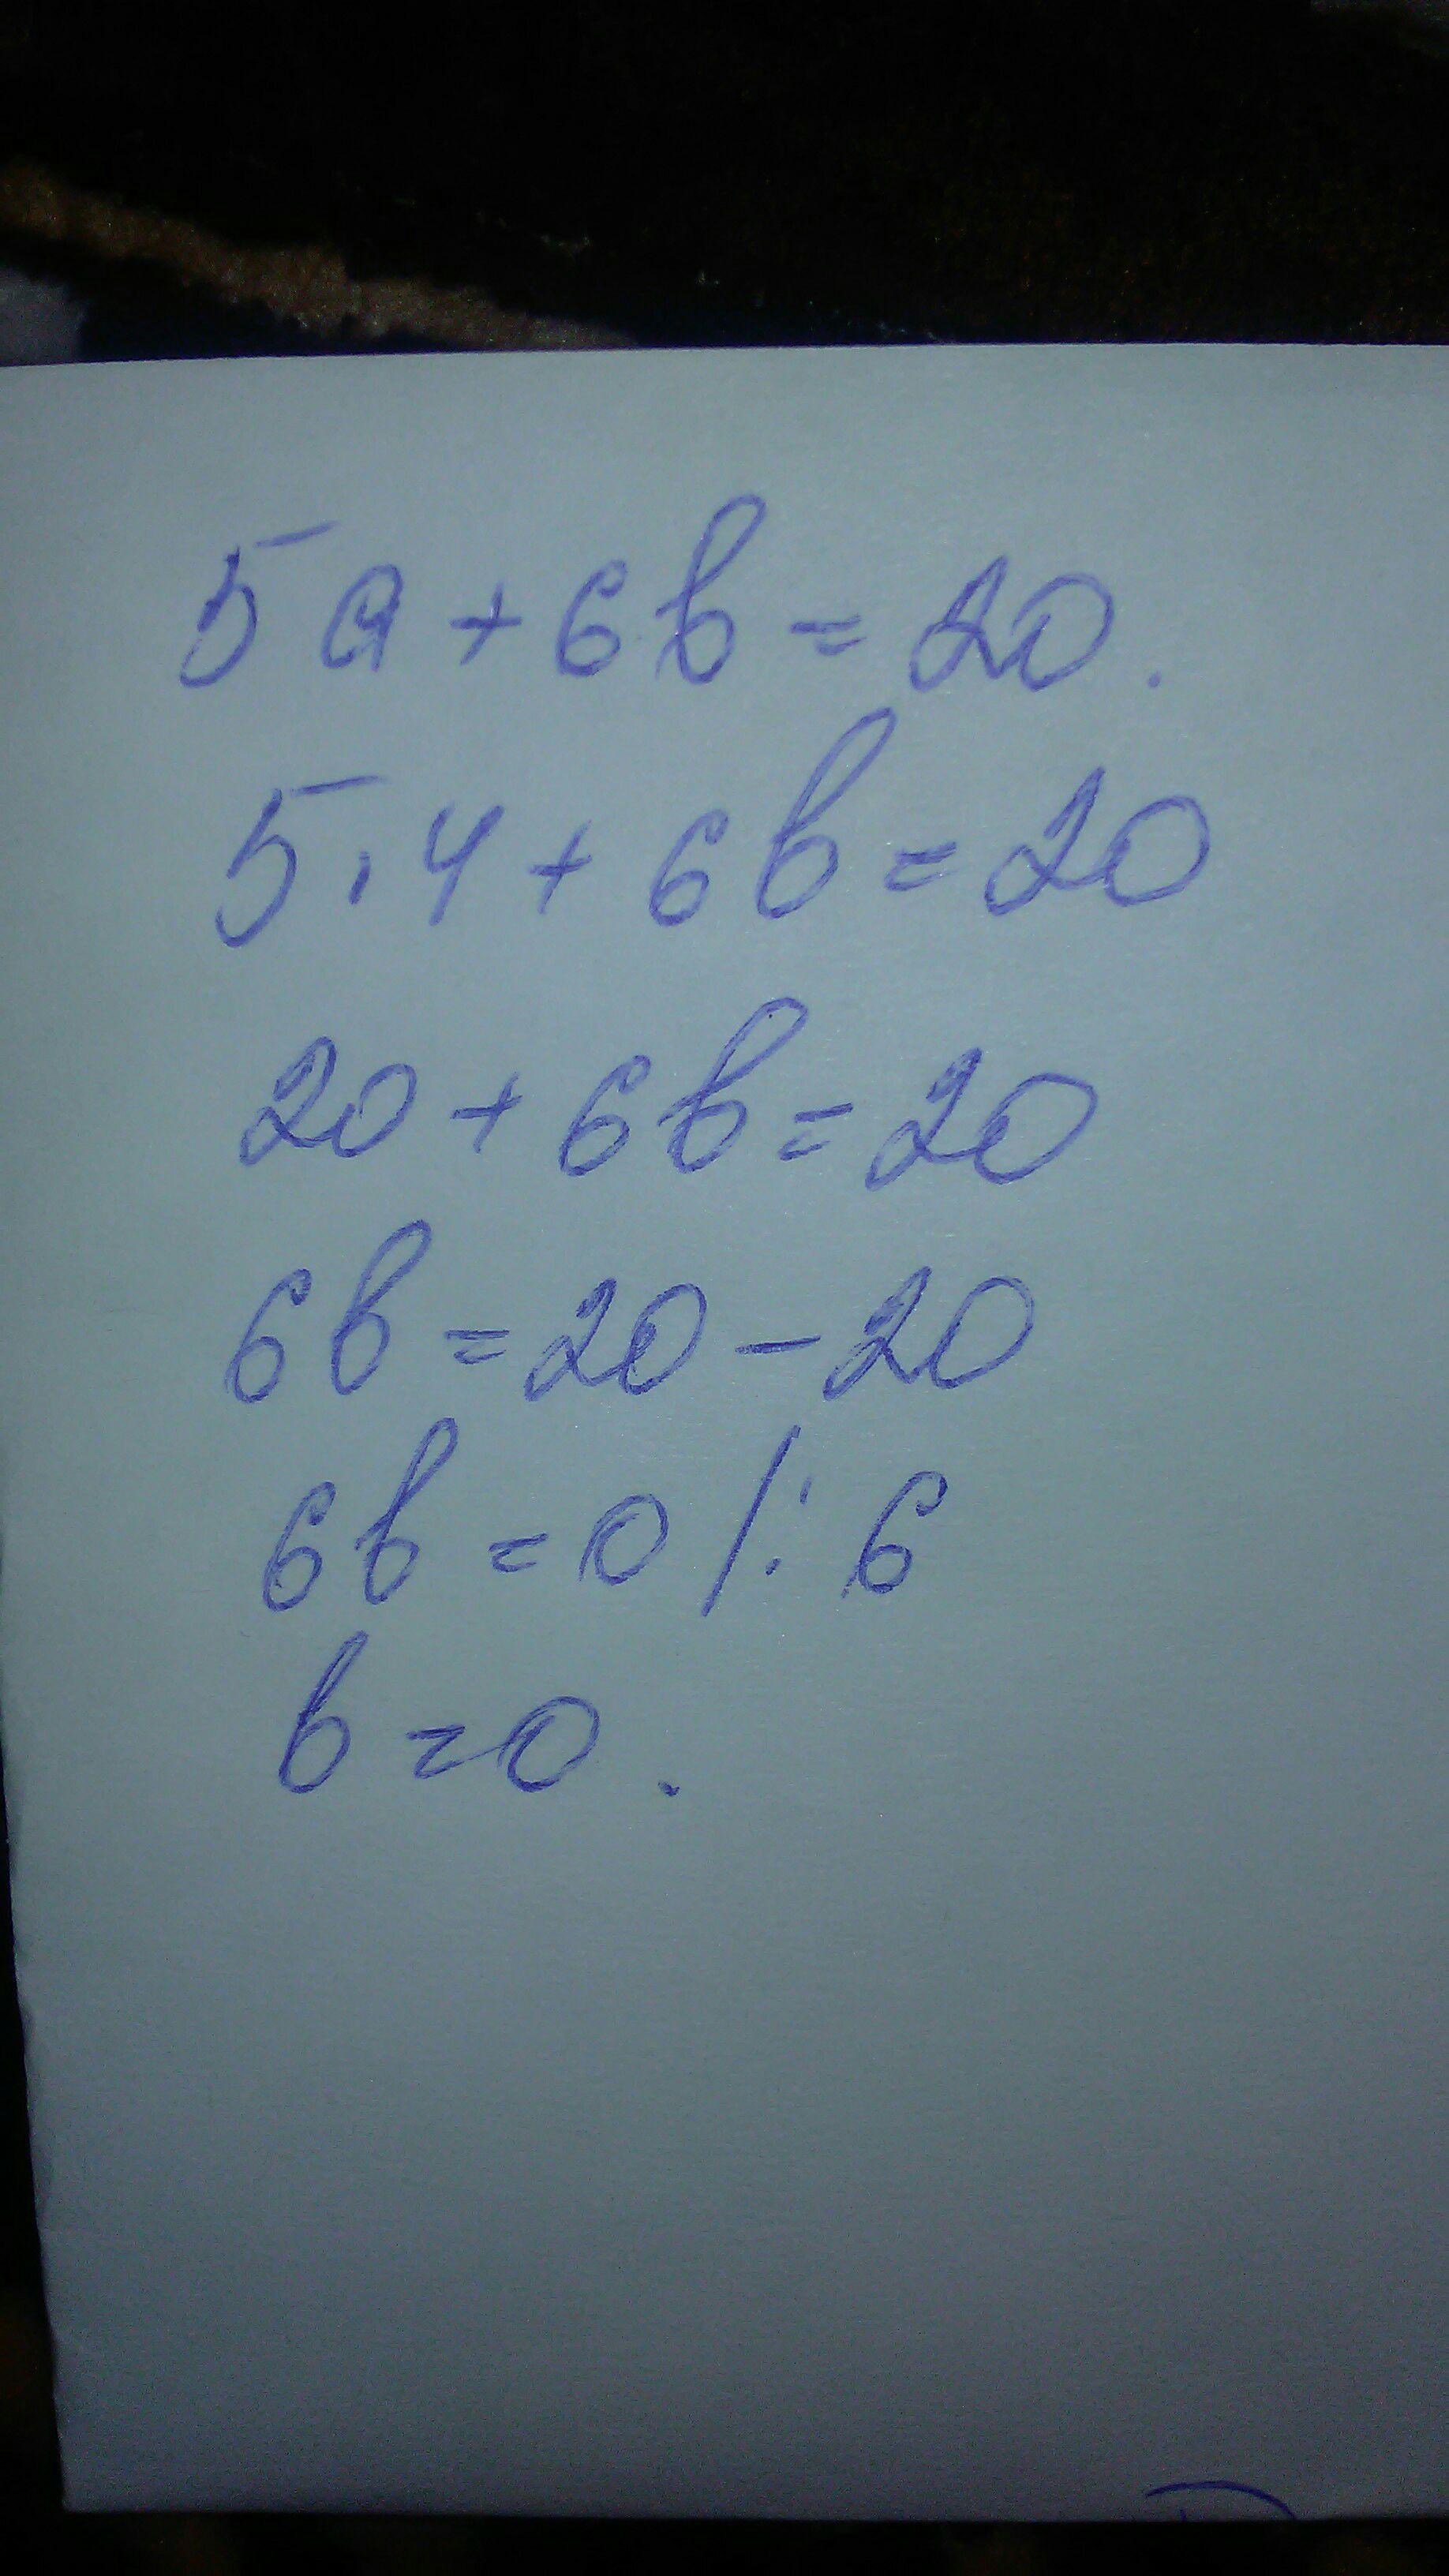 5a+6b=20.
5·4+6b=20
20+6b=20
6b=20-20
6b=0/:6
b=0.